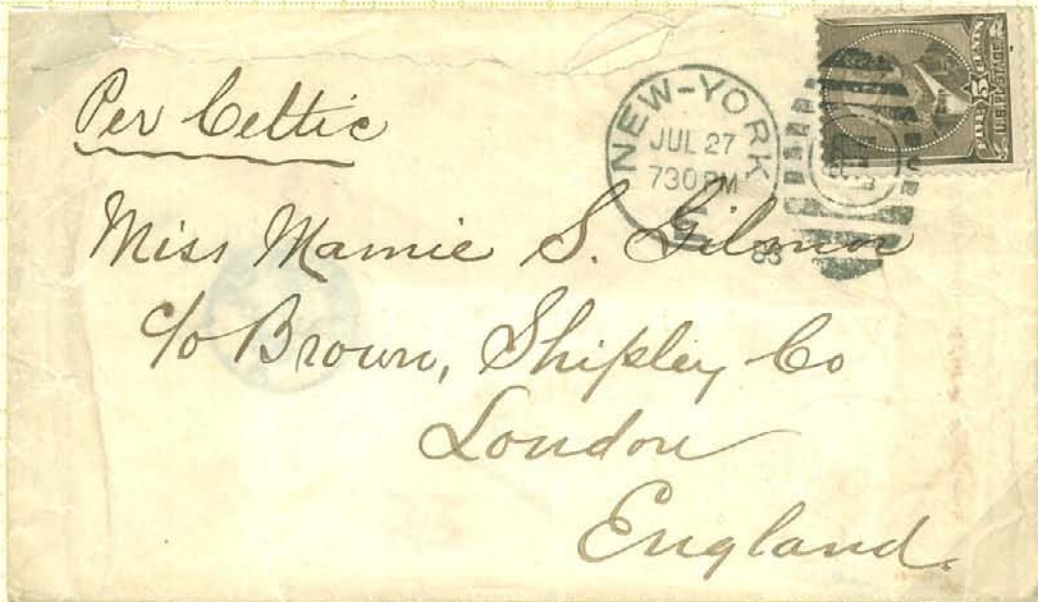 Per Celtic
NEW-YORK
JUL 27
730 PM
83
FIVE 5 CENTS
U.S. POSTAGE
Miss Mamie S. Gilmor
c/o Brown, Shipley Co
London
England.